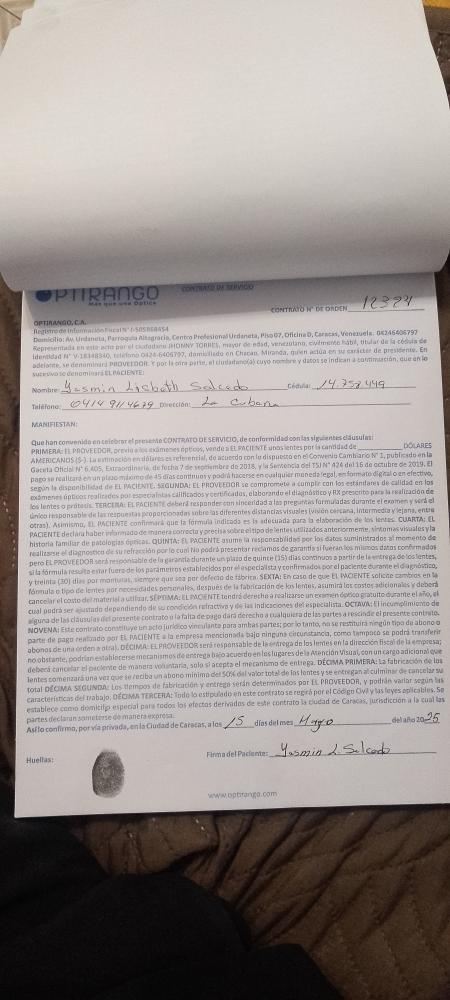 OPTIRANGO
Más que una Óptica
CONTRATO DE SERVICIO
CONTRATO N° DE ORDEN 12324
OPTIRANGO, C.A.
Registro de Información Fiscal N° J-505868454
Domicilio: Av. Urdaneta, Parroquia Altagracia, Centro Profesional Urdaneta, Piso 07, Oficina D, Caracas, Venezuela. 04246406797
Representada en este acto por el ciudadano JHONNY TORRES, mayor de edad, venezolano, civilmente hábil, titular de la cédula de
Identidad N° V-18348340, teléfono 0424-6406797, domiciliado en Chacao, Miranda, quien actúa en su carácter de presidente. En
adelante, se denominará PROVEEDOR. Y por la otra parte, el ciudadano(a) cuyo nombre y datos se indican a continuación, que en lo
sucesivo se denominará EL PACIENTE:
Nombre: Yasmin Lisbeth Salcedo Cédula: 14.757.449
Teléfono: 0414 9114679 Dirección: La Cubana
MANIFIESTAN:
Que han convenido en celebrar el presente CONTRATO DE SERVICIO, de conformidad con las siguientes cláusulas:
PRIMERA: EL PROVEEDOR, previo a los exámenes ópticos, vende a EL PACIENTE unos lentes por la cantidad de DÓLARES
AMERICANOS ($-). La estimación en dólares es referencial, de acuerdo con lo dispuesto en el Convenio Cambiario N° 1, publicado en la
Gaceta Oficial N° 6.405, Extraordinaria, de fecha 7 de septiembre de 2018, y la Sentencia del TSJ N° 424 del 16 de octubre de 2019. El
pago se realizará en un plazo máximo de 45 días continuos y podrá hacerse en cualquier moneda legal, en formato digital o en efectivo,
según la disponibilidad de EL PACIENTE. SEGUNDA: EL PROVEEDOR se compromete a cumplir con los estándares de calidad en los
exámenes ópticos realizados por especialistas calificados y certificados, elaborando el diagnóstico y RX prescrito para la realización de
los lentes o prótesis. TERCERA: EL PACIENTE deberá responder con sinceridad a las preguntas formuladas durante el examen y será el
único responsable de las respuestas proporcionadas sobre las diferentes distancias visuales (visión cercana, intermedia y lejana, entre
otras). Asimismo, EL PACIENTE confirmará que la fórmula indicada es la adecuada para la elaboración de los lentes. CUARTA: EL
PACIENTE declara haber informado de manera correcta y precisa sobre el tipo de lentes utilizados anteriormente, síntomas visuales y la
historia familiar de patologías ópticas. QUINTA: EL PACIENTE asume la responsabilidad por los datos suministrados al momento de
realizarse el diagnostico de su refracción por lo cual No podrá presentar reclamos de garantía si fueran los mismos datos confirmados
pero EL PROVEEDOR será responsable de la garantía durante un plazo de quince (15) días continuos a partir de la entrega de los lentes,
si la fórmula resulta estar fuera de los parámetros establecidos por el especialista y confirmados por el paciente durante el diagnóstico,
y treinta (30) días por monturas, siempre que sea por defecto de fábrica. SEXTA: En caso de que EL PACIENTE solicite cambios en la
fórmula o tipo de lentes por necesidades personales, después de la fabricación de los lentes, asumirá los costos adicionales y deberá
cancelar el costo del material a utilizar. SÉPTIMA: EL PACIENTE tendrá derecho a realizarse un examen óptico gratuito durante el año, el
cual podrá ser ajustado dependiendo de su condición refractiva y de las indicaciones del especialista. OCTAVA: El incumplimiento de
alguna de las cláusulas del presente contrato o la falta de pago dará derecho a cualquiera de las partes a rescindir el presente contrato.
NOVENA: Este contrato constituye un acto jurídico vinculante para ambas partes; por lo tanto, no se restituirá ningún tipo de abono o
parte de pago realizado por EL PACIENTE a la empresa mencionada bajo ninguna circunstancia, como tampoco se podrá transferir
abonos de una orden a otra). DÉCIMA: EL PROVEEDOR será responsable de la entrega de los lentes en la dirección fiscal de la empresa;
no obstante, podrían establecerse mecanismos de entrega bajo acuerdo en los lugares de la Atención Visual, con un cargo adicional que
deberá cancelar el paciente de manera voluntaria, solo si acepta el mecanismo de entrega. DÉCIMA PRIMERA: La fabricación de los
lentes comenzará una vez que se reciba un abono mínimo del 50% del valor total de los lentes y se entregan al culminar de cancelar su
total DÉCIMA SEGUNDA: Los tiempos de fabricación y entrega serán determinados por EL PROVEEDOR, y podrán variar según las
características del trabajo. DÉCIMA TERCERA: Todo lo estipulado en este contrato se regirá por el Código Civil y las leyes aplicables. Se
establece como domicilio especial para todos los efectos derivados de este contrato la ciudad de Caracas, jurisdicción a la cual las
partes declaran someterse de manera expresa.
Así lo confirmo, por vía privada, en la Ciudad de Caracas, a los 15 días del mes Mayo del año 2025
Huellas:
Firma del Paciente: Yasmin L. Salcedo
www.optirango.com